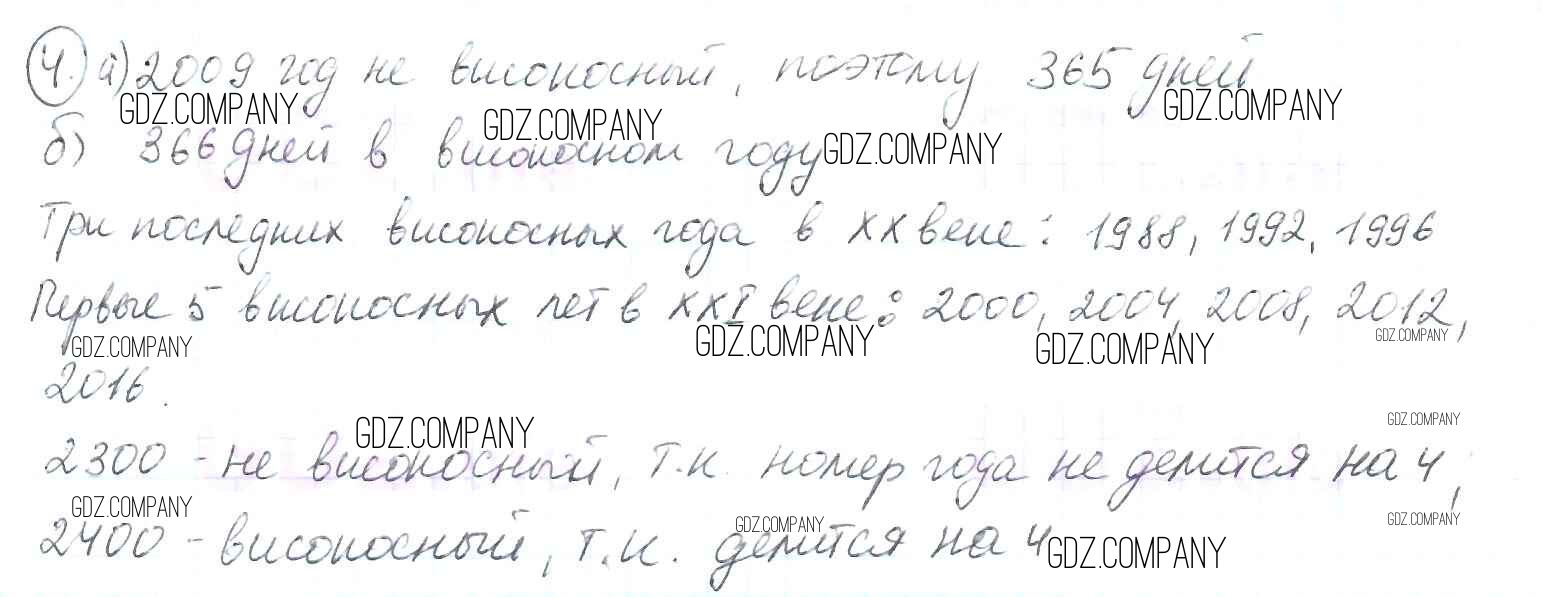 4. а) 2009 год не високосный, поэтому 365 дней
GDZ.COMPANY GDZ.COMPANY GDZ.COMPANY
б) 366 дней в високосном году GDZ.COMPANY
Три последних високосных года в XX веке: 1988, 1992, 1996
Первые 5 високосных лет в XXI веке: 2000, 2004, 2008, 2012,
GDZ.COMPANY GDZ.COMPANY GDZ.COMPANY GDZ.COMPANY
2016.
GDZ.COMPANY GDZ.COMPANY
2300 - не високосный, т.к. номер года не делится на 4;
GDZ.COMPANY GDZ.COMPANY GDZ.COMPANY
2400 - високосный, т.к. делится на 4 GDZ.COMPANY